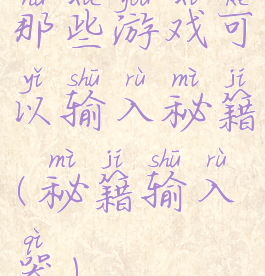 nà xiē yóu xì kě
那些游戏可
yǐ shū rù mì jí
以输入秘籍
mì jí shū rù
(秘籍输入
qì
器)